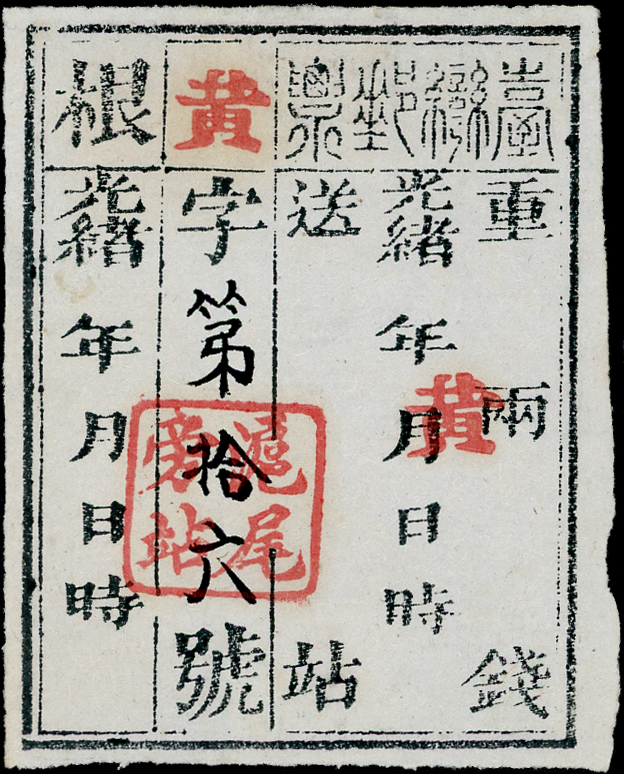 臺灣郵票
重 兩 錢
光緒 年 月 日 時
黄
送 站
黄字第拾六號
滬尾
旁站
根
光緒 年 月 日 時